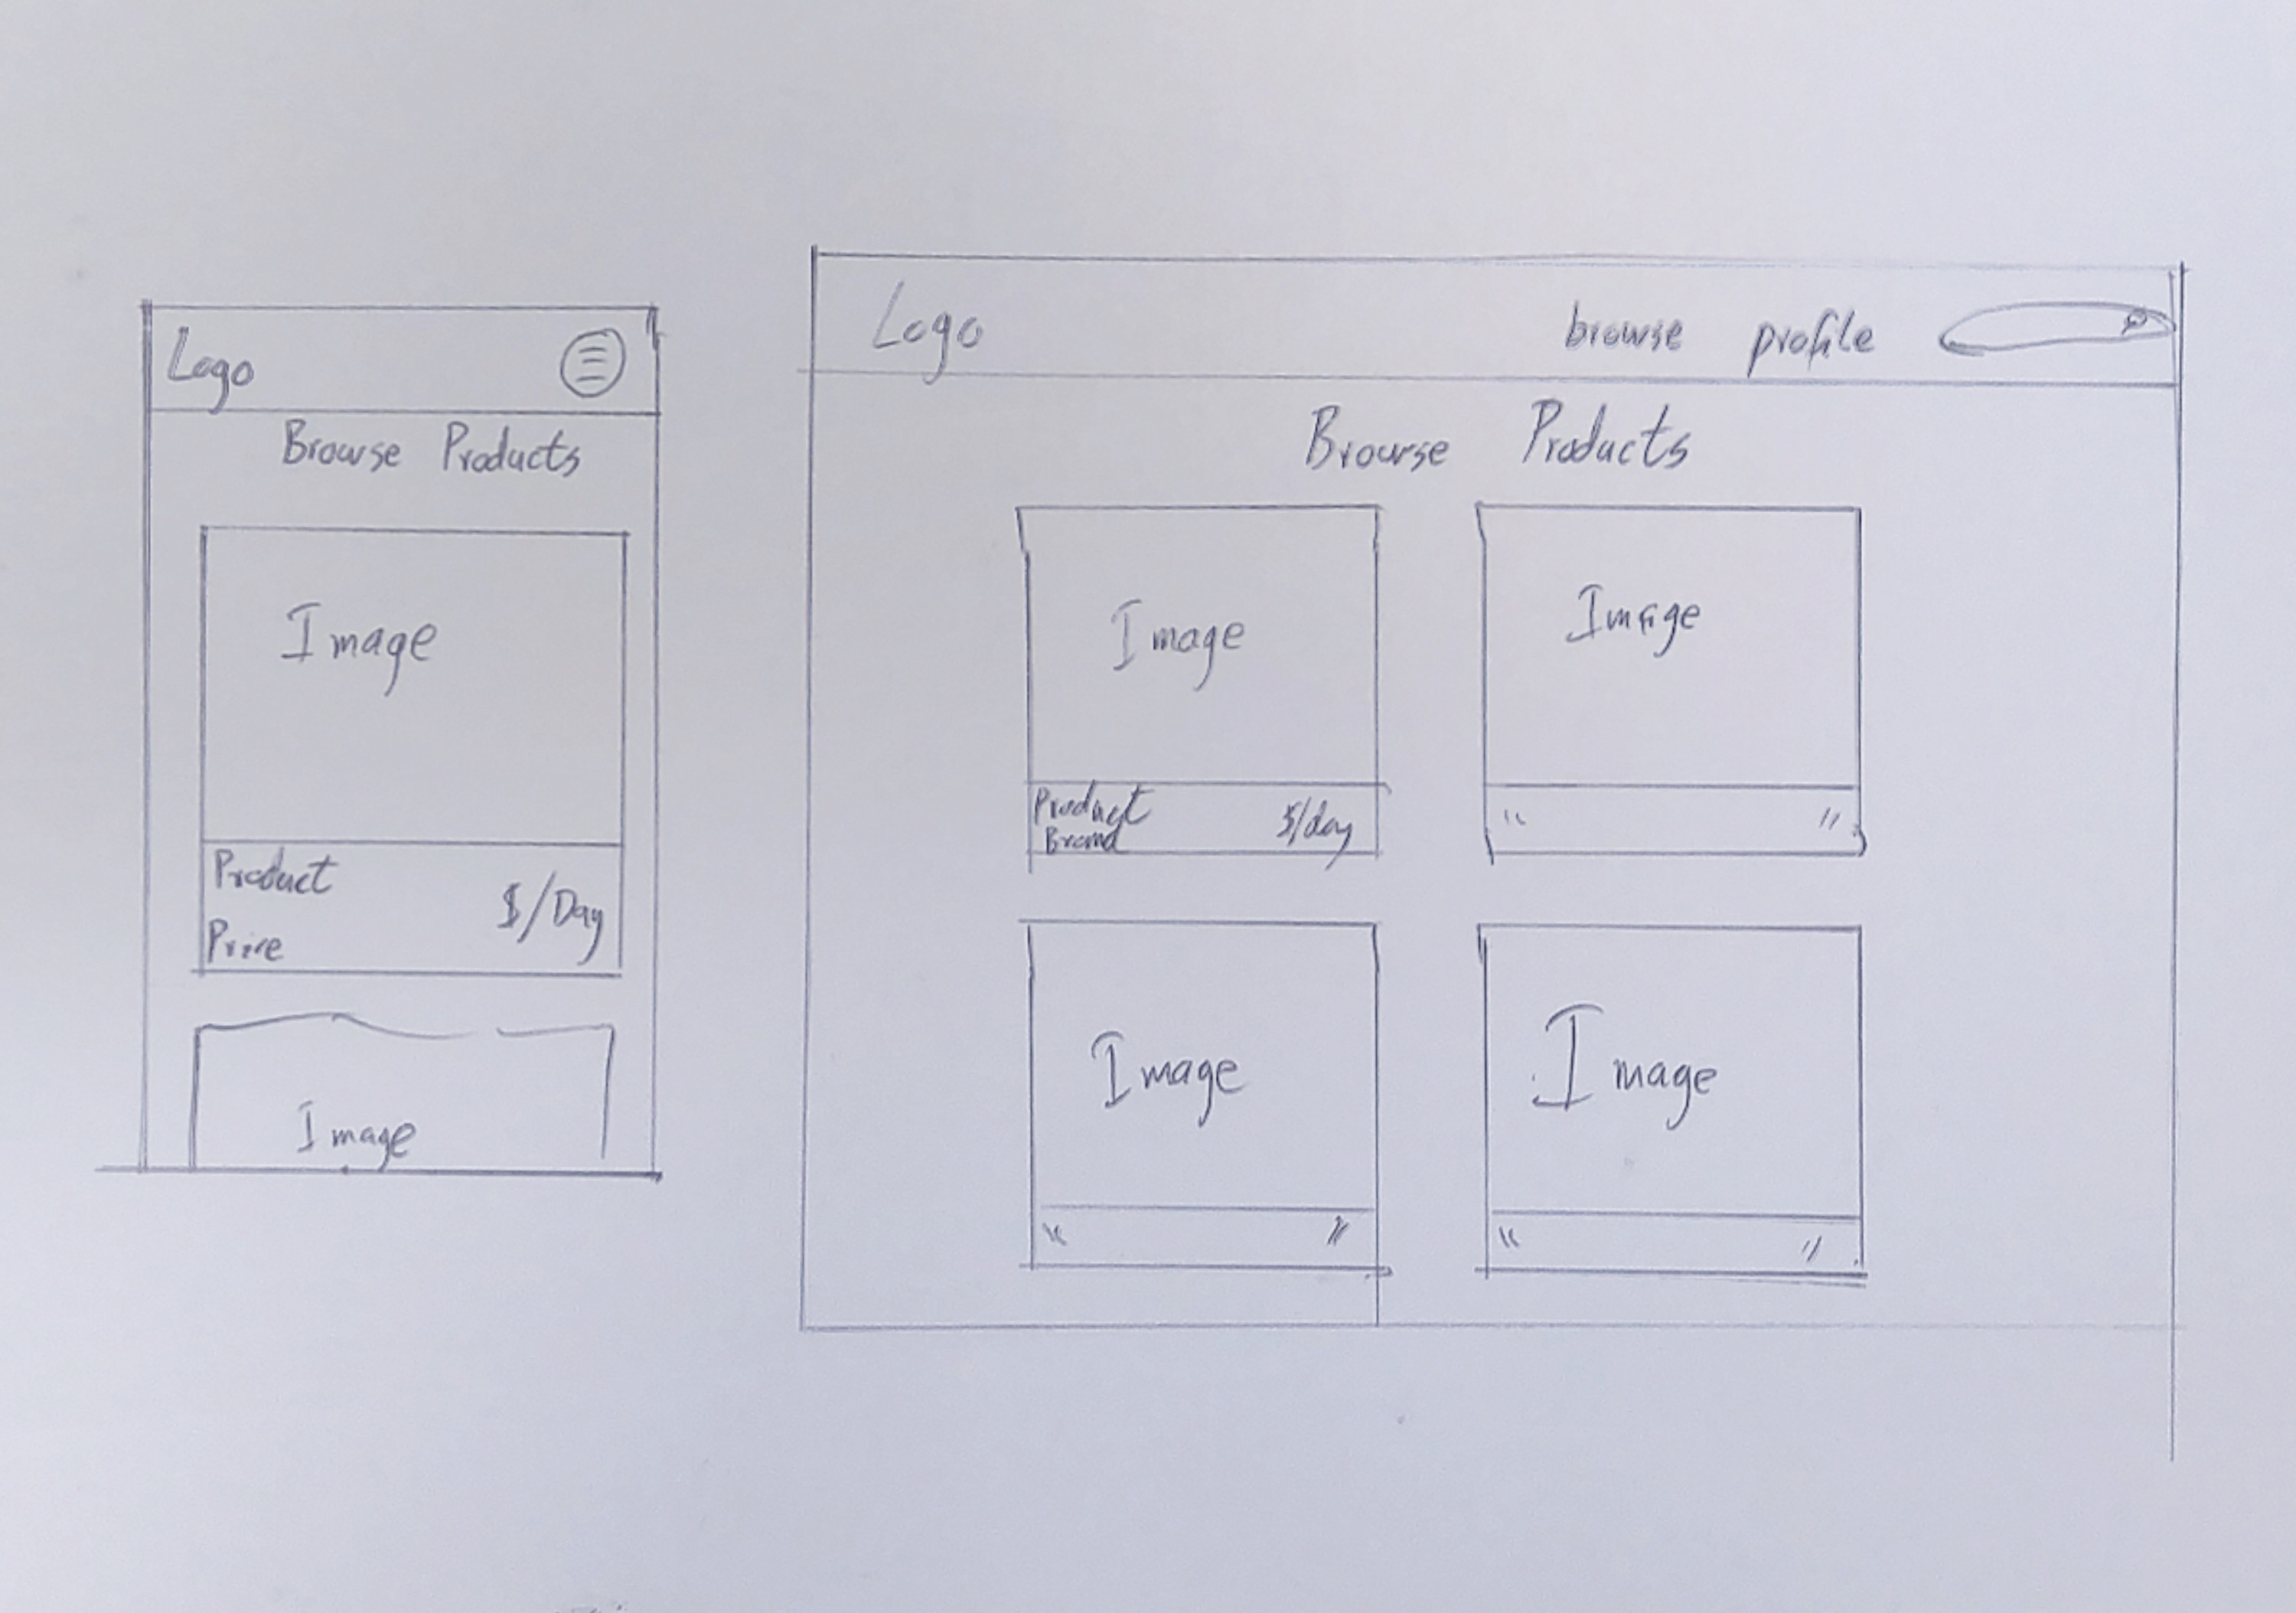 Logo
Browse Products
Image
Product
Price
$/Day
Image
Logo browse profile
Browse Products
Image
Image
Product
Brand
$/day
" "
Image
Image
" "
" "